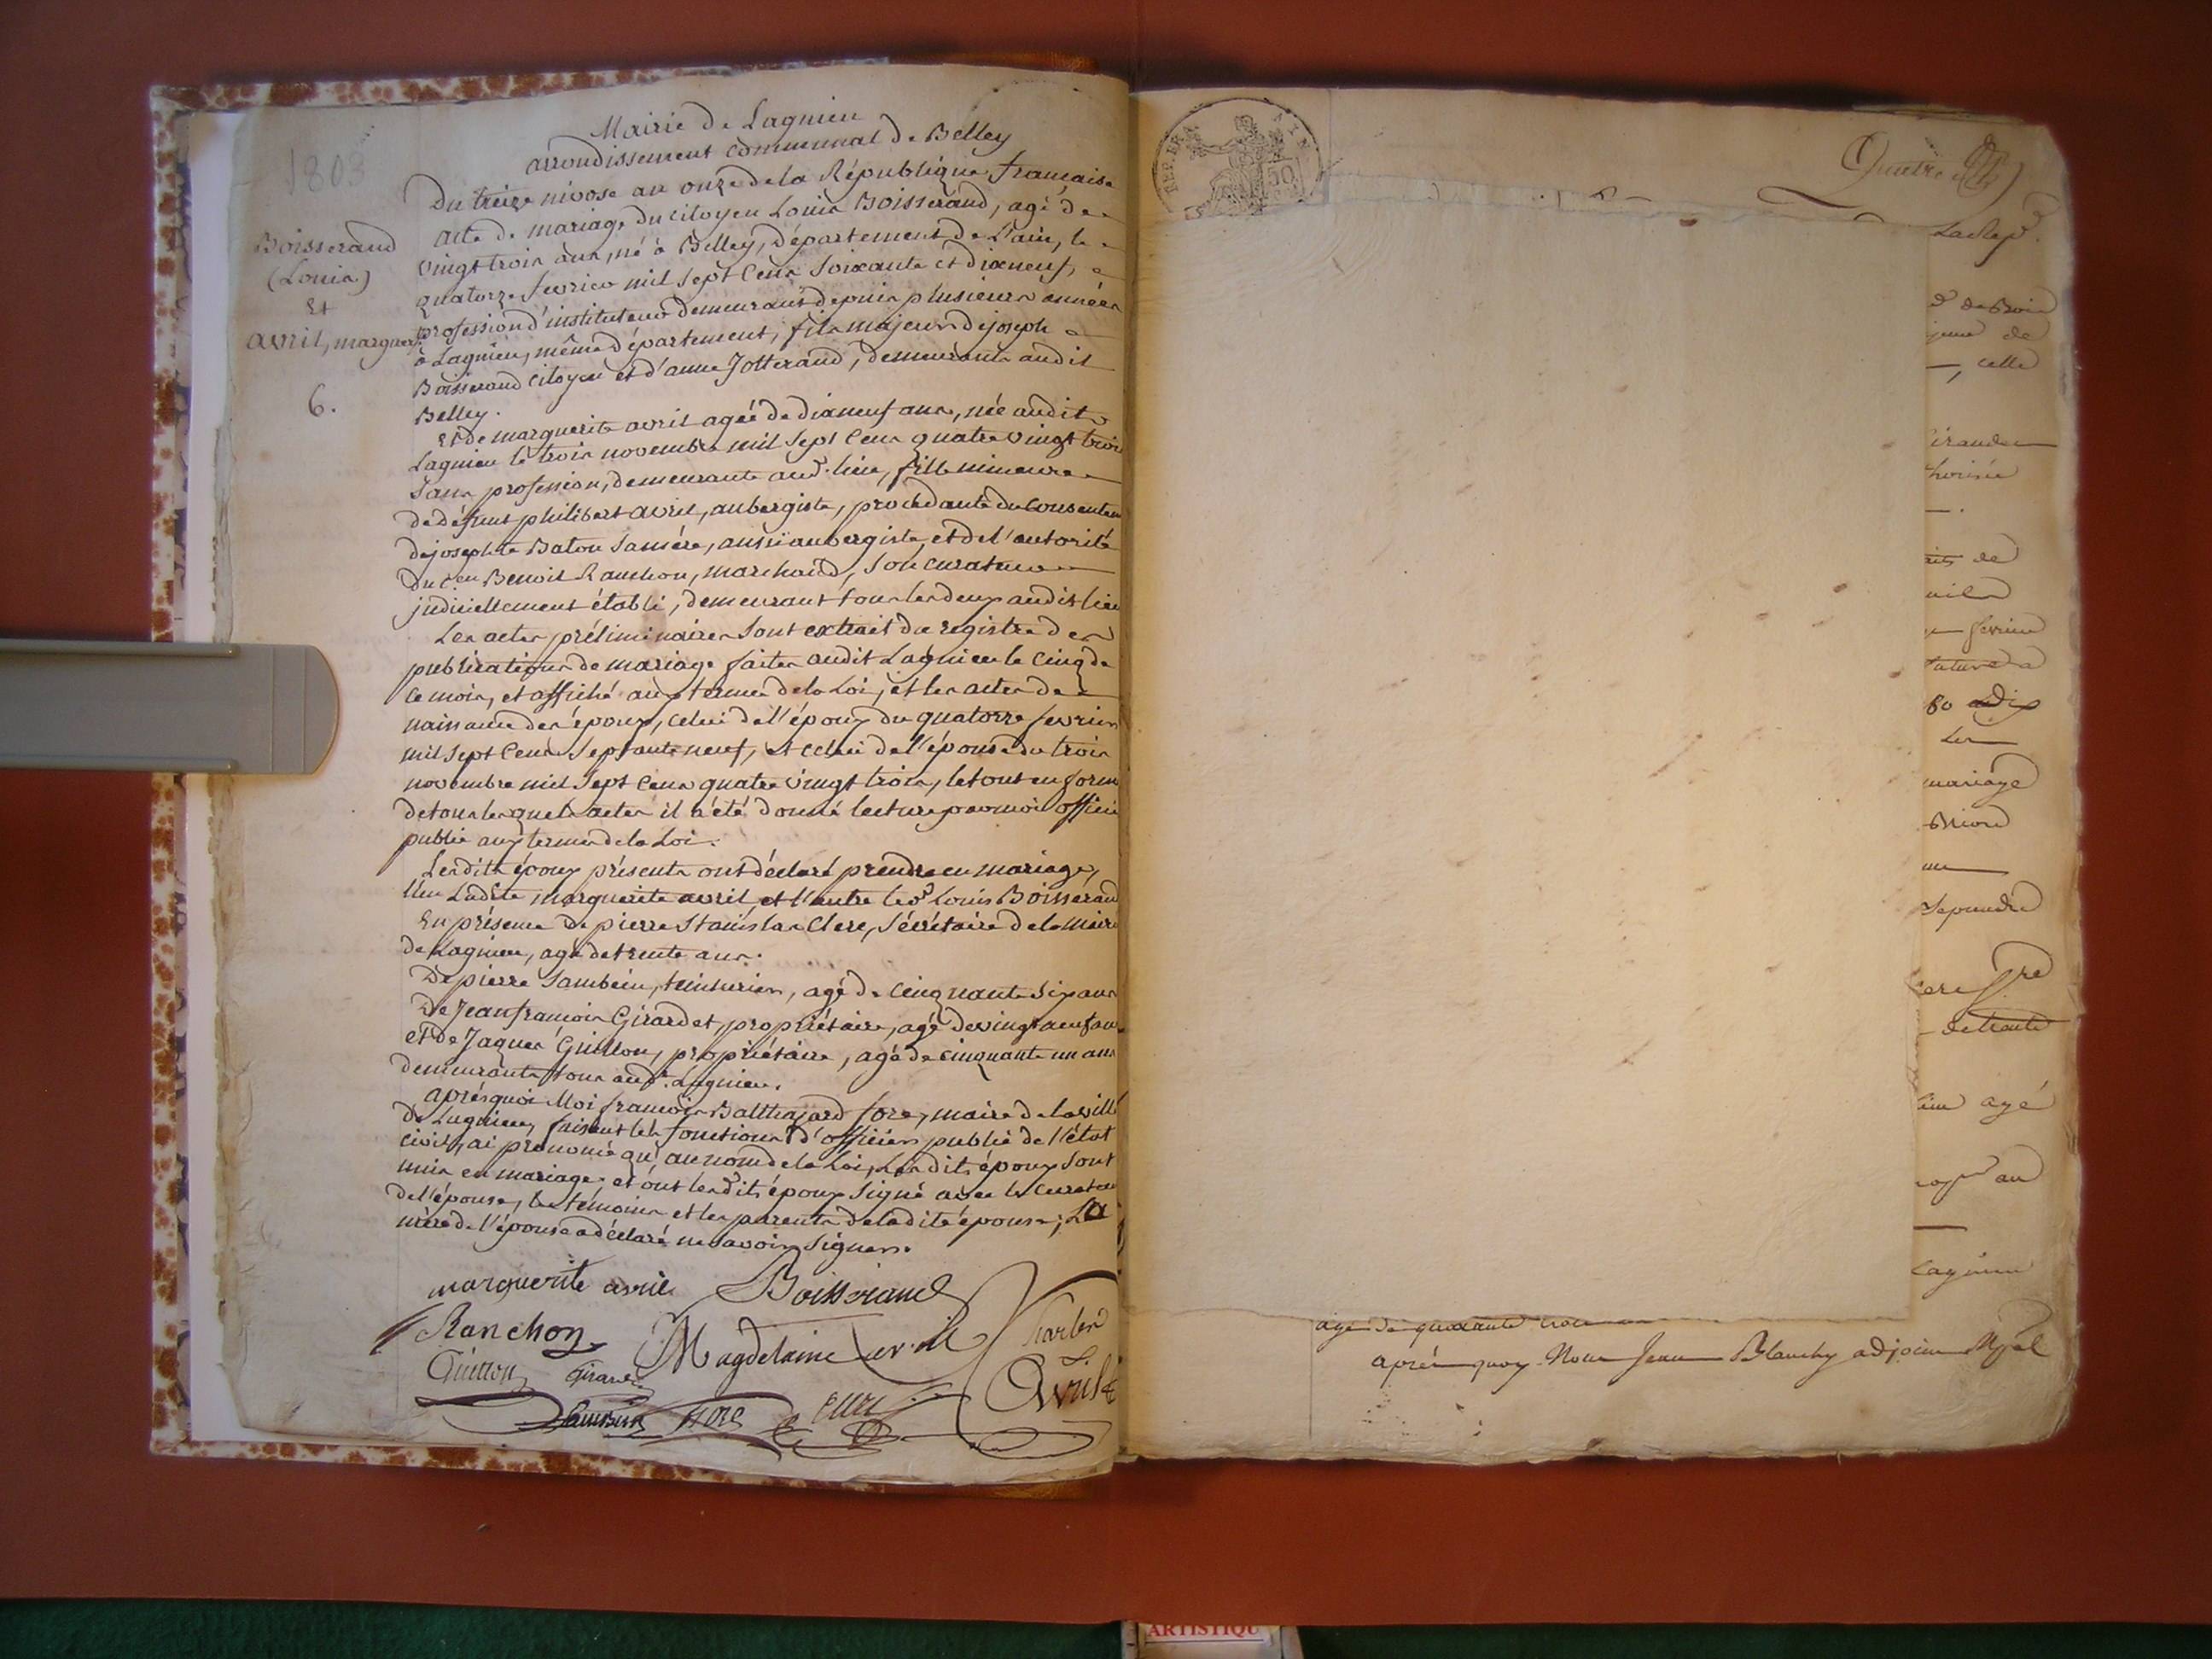 1803
Mairie de Lagnieu
arrondissement communal de Belley
Du treize nivose an onze de la République française
acte de mariage du citoyen Louis Boisserand, agé de
vingt trois ans, né à Belley, département de l'ain, le
quatorze fevrier mil sept cens soixante et dixneuf,
profession d'instituteur demeurant depuis plusieurs années
à Lagnieu, même département, fils majeur de joseph
Boisserand citoyen et d'anne Jotterand, demeurants audit
Belley.
Boisserand
(Louis)
Et
avril, marguerite
6.
Et de marguerite avril agée de dixneuf ans, née audit
Lagnieu le trois novembre mil sept cens quatre vingt trois
sans profession, demeurante aud. lieu, fille mineure
de défunt philibert avril, aubergiste, procédante du consentem
de josephte Baton sa mére, aussi aubergiste, et de l'autorité
du cen Benoit Ranchon, marchand, son curateur
judiciellement établi, demeurant tous les deux audit lieu
Les actes préliminaires sont extrait du registre des
publications de mariage faites audit Lagnieu le cinq de
ce mois, et affiché aux termes de la Loi, et les actes de
naissance des époux, celui de l'époux du quatorze fevrier
mil sept cens septante neuf, et celui de l'épouse du trois
novembre mil sept cens quatre vingt trois, le tout en forme
de tous lesquels actes il a été donné lecture par moi officier
public aux termes de la Loi.
Lesdits époux présents ont déclaré prendre en mariage,
l'un Ladite marguerite avril, et l'autre led. Louis Boisserand
En présence de pierre Stanislas Clerc, sécrétaire de la mairie
de Lagnieu, agé de trente ans.
De pierre Sambein, teinturier, agé de cinquante six ans
De Jean françois Girardet, propriétaire, agé de vingt neuf ans
et de Jaques Guillon, propriétaire, agé de cinquante un ans
demeurants tous aud. Lagnieu.
après quoi Moi françois Balthazard fore, maire de la ville
de Lagnieu, faisant les fonctions d'officier public de l'état
civil, ai prononcé qu'au nom de la Loi, Lesdits époux sont
unis en mariage; et ont lesdits époux signé avec le curateur
de l'épouse, les témoins et les parents de ladite épouse; La
mère de l'épouse a déclaré ne savoir signer.
marguerite avril Boisserand
Ranchon Magdelaine avril
Guillon Girardet Avril
Sambein fore Clerc
REP. FRA
50
Quatre
Lad Rep.
de
, celle
de
fevrier
future
60 dix
Les
mariage
Briord
de trente
agé
au
Lagnieu
agé de quarante trois
après quoy Nous Jean Blanchy adjoint
ARTISTIQU